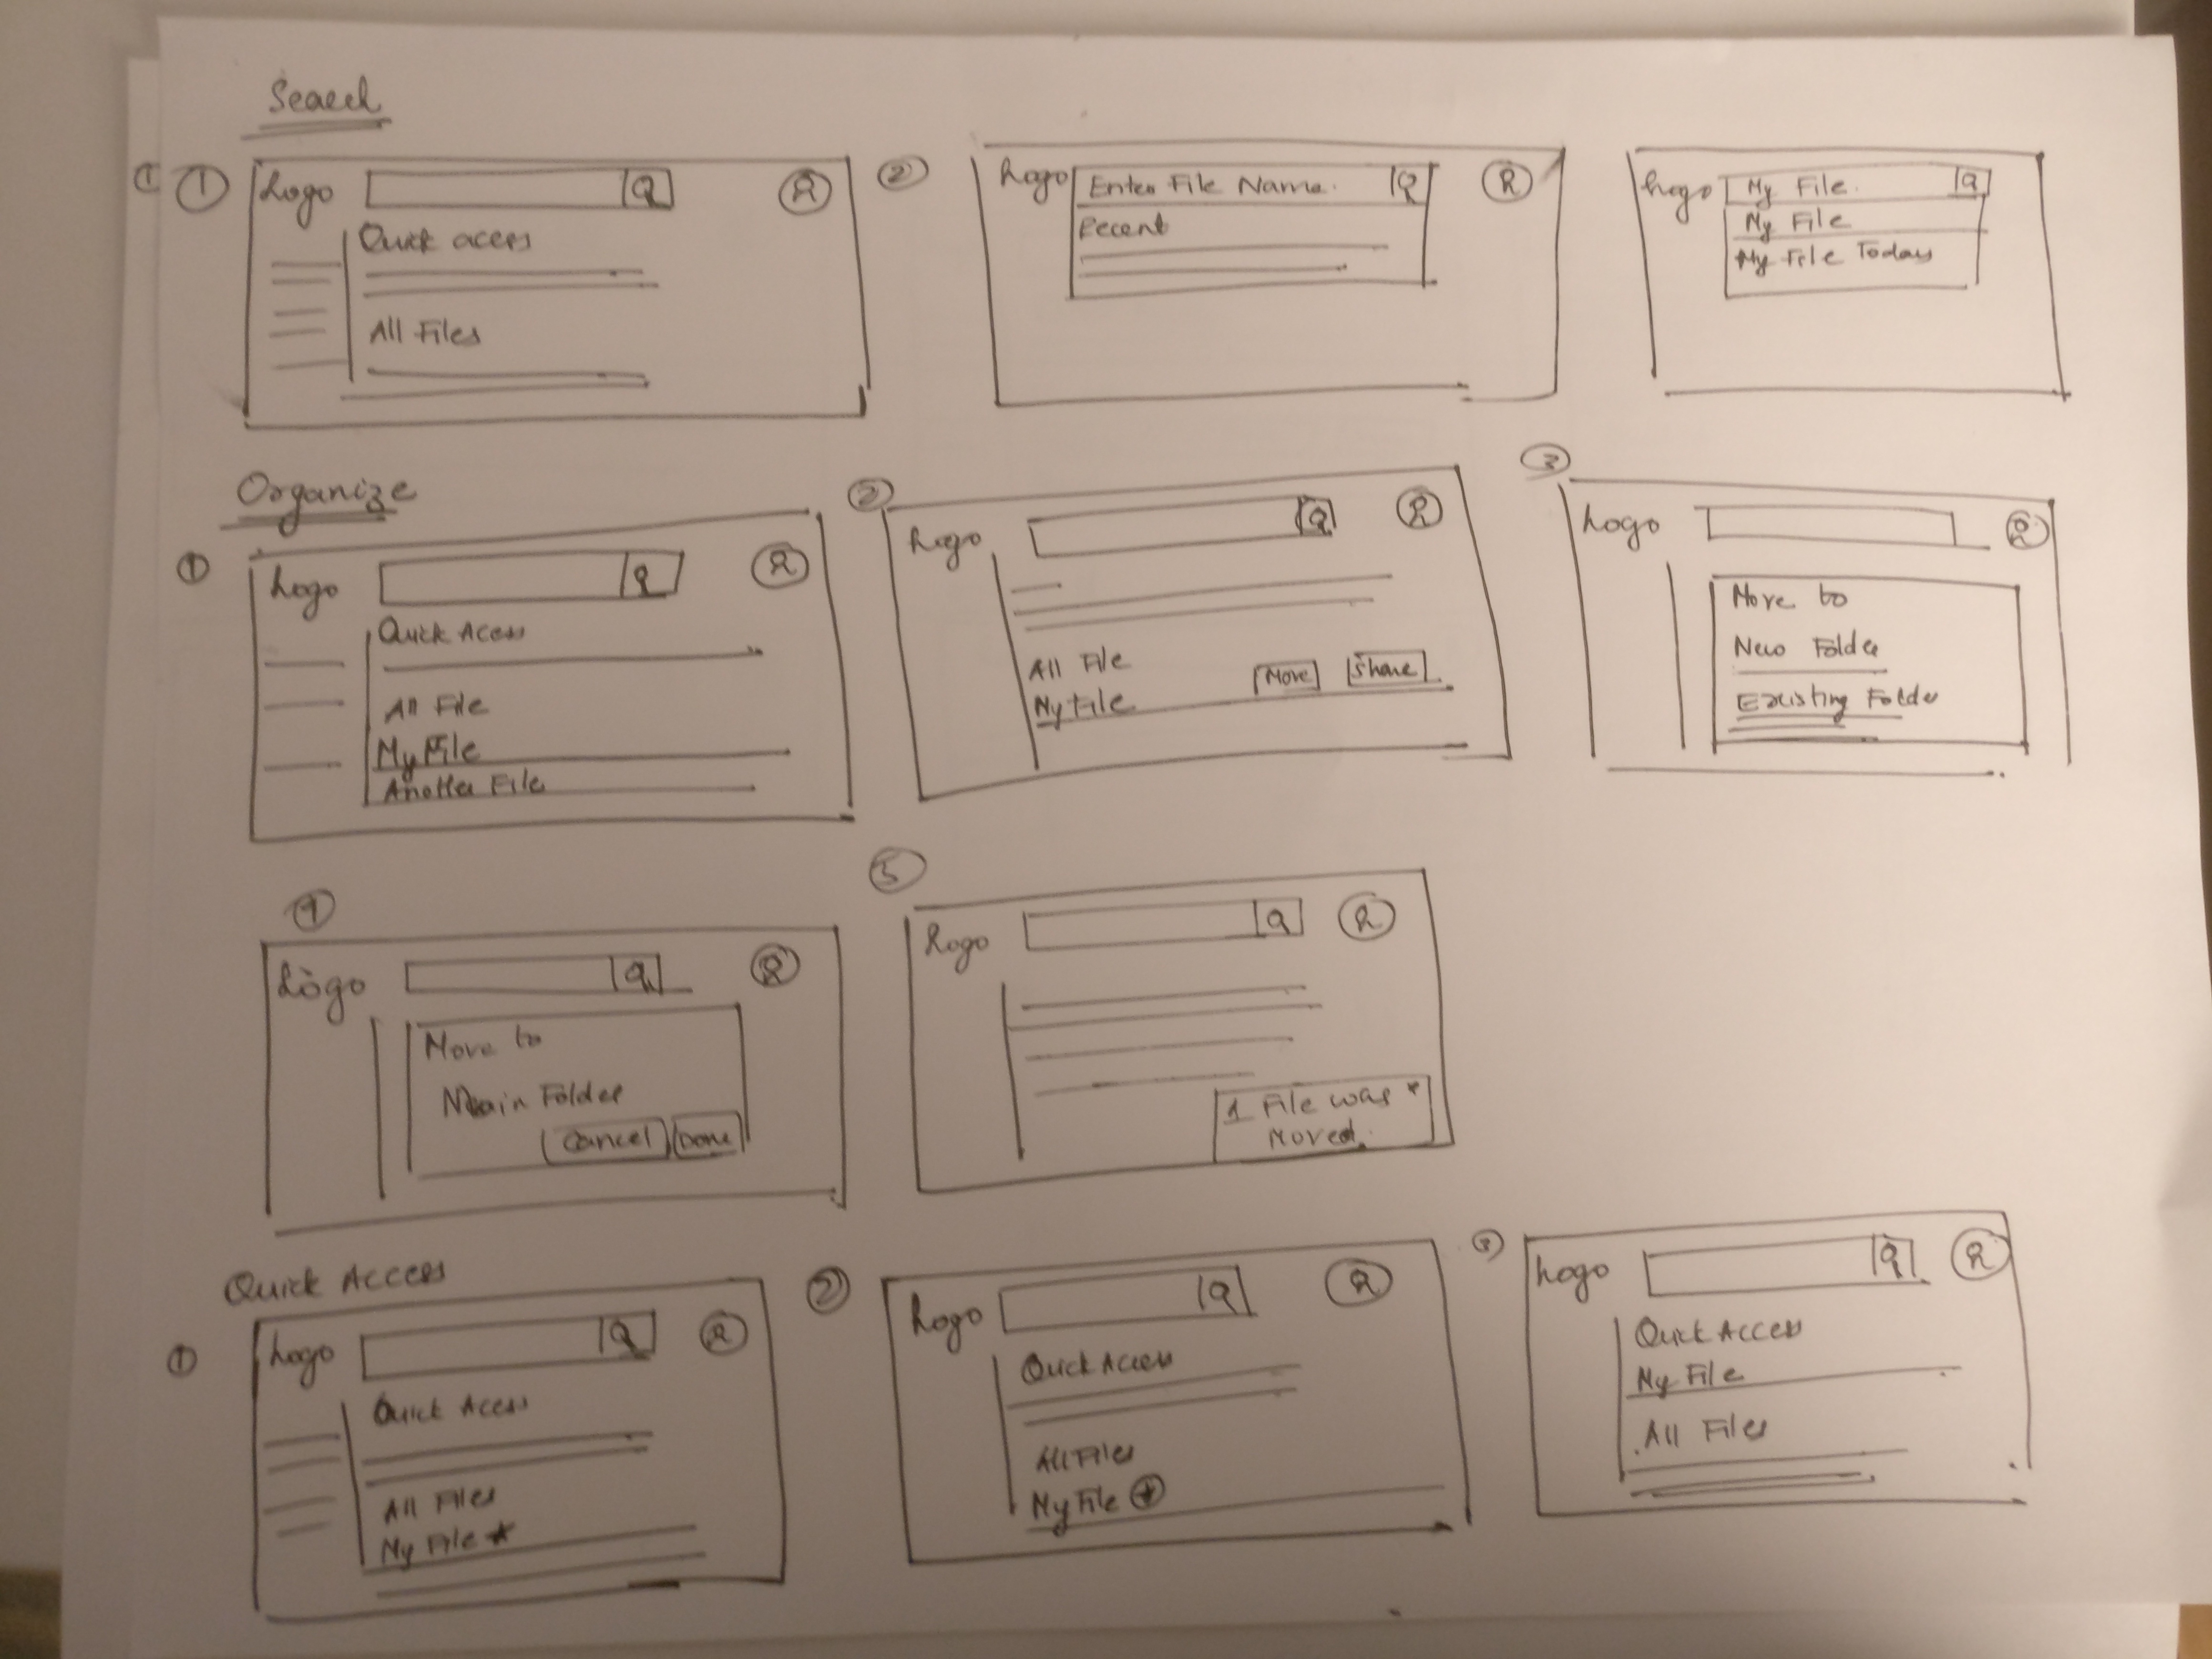 Search
1
Logo
Q
R
Quick acess
All Files
2
Logo
Enter File Name.
Q
R
Recent
Logo
My File.
Q
My File
My File Today
Organize
1
Logo
Q
R
Quick Acess
All File
My File
Another File
2
Logo
Q
R
All File
Move
Share
My File
3
Logo
R
Move to
New Folder
Existing Folder
4
Logo
Q
R
Move to
Main Folder
Cancel
Done
5
Logo
Q
R
1 File was
Moved.
Quick Access
1
Logo
Q
R
Quick Acess
All Files
My File ★
2
Logo
Q
R
Quick Access
All Files
My File
3
Logo
Q
R
Quick Access
My File
All Files